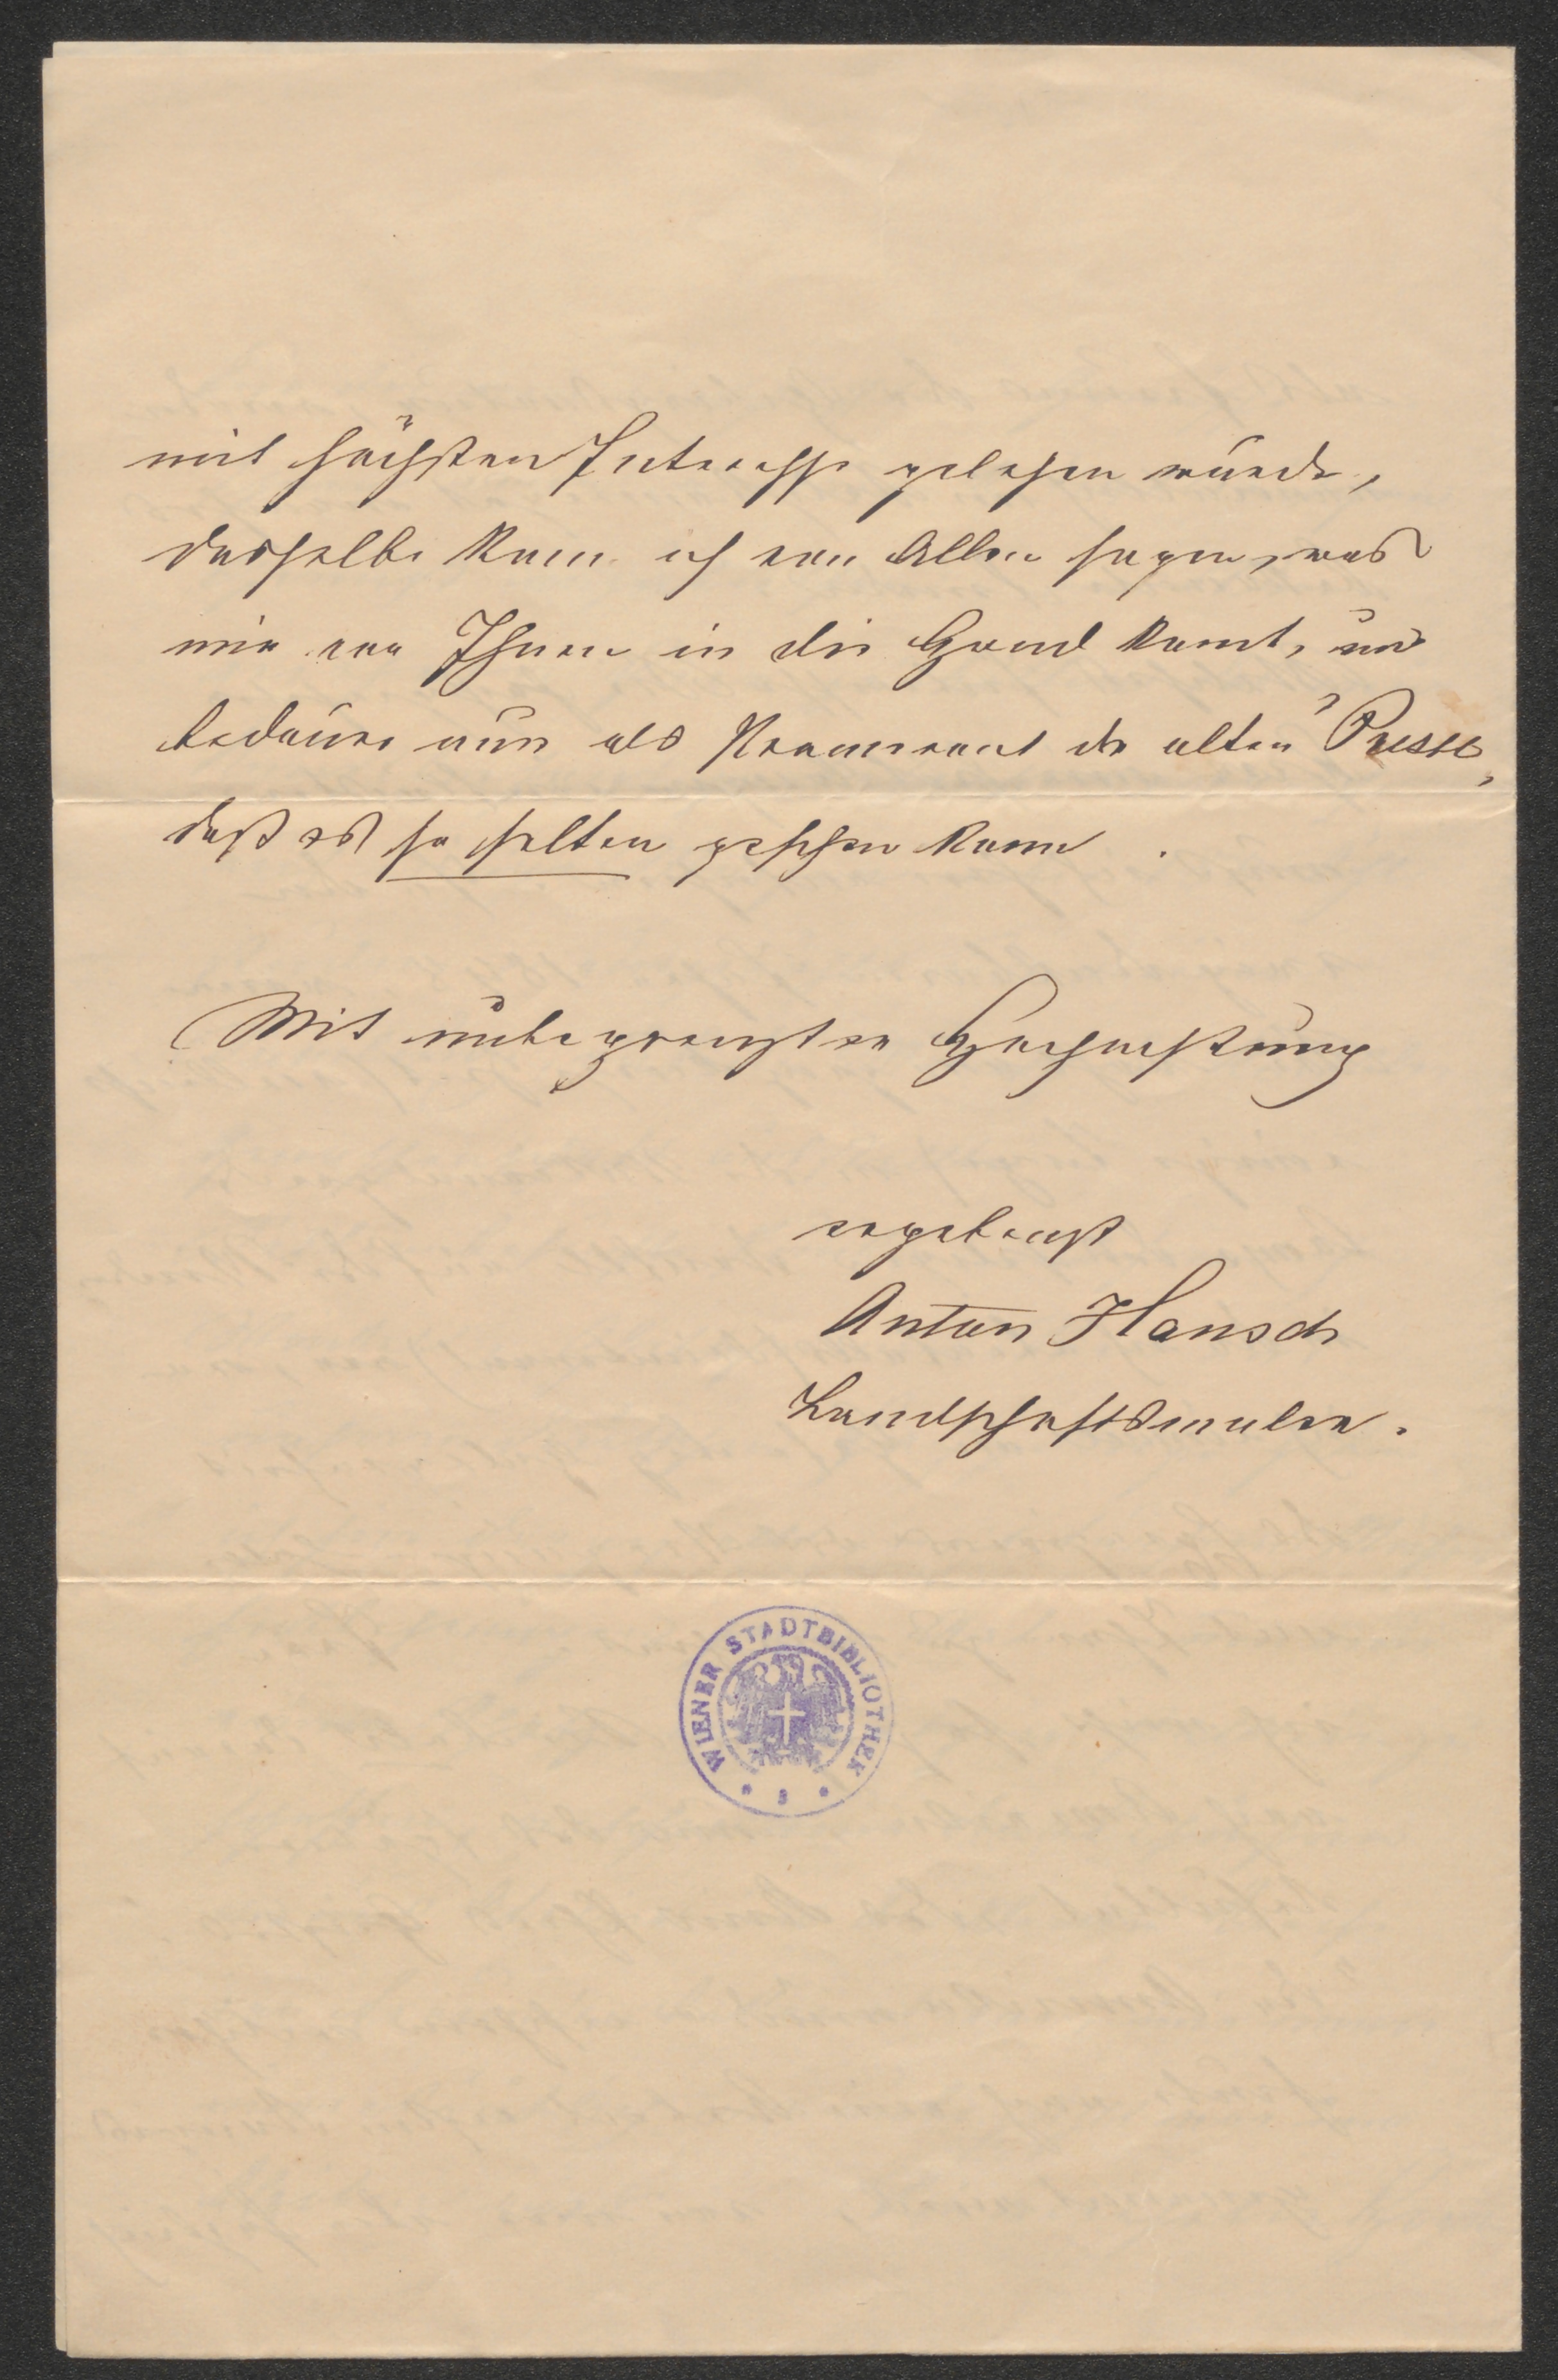 mit höchsten Interesse gelesen wurde,
dasselbe kann ich von Allen sagen, was
mir von Ihnen in die Hand komt, und
bedaure nur als Pränumerant der alten "Presse,
daß es so selten geschehen kann .
Mit unbegrenzter Hochachtung
ergebenst
Anton Hansch
Landschaftsmaler.
WIENER STADTBIBLIOTHEK